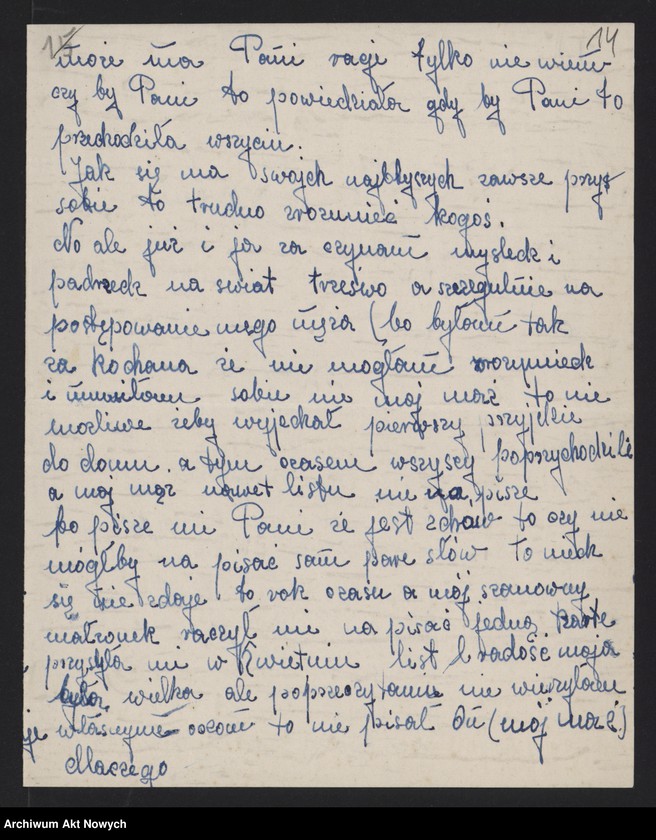 14
może ma Pani racje tylko nie wiem
czy by Pani to powiedziała gdy by Pani to
przechodziła w życiu.
Jak się ma swojch najbłyszych zawsze przy
sobie to trudno zrozumieć kogoś.
No ale już i ja za czynam myśleć i
patrzeć na świat trzeźwo a szczegulnie na
postępowanie mego męża (bo byłam tak
za kochana że nie mogłam zrozumieć
i mówiłam sobie nie moj mąż to nie
możliwe żeby wyjechał pierwszy przyjdzie
do domu. a tym czasem wszyscy poprzychodzili
a mój mąż nawet listu nie na pisze
bo pisze mi Pani że jest zdrów to czy nie
mógłby na pisać sam pare słów to niech
się nie zdaje to rok czasu a mój szanowny
małżonek raczył mi na pisać jedną kartę
przysyła mi w Kwietniu list, radość moja
była wielka ale po przeczytaniu nie wierzyłam
własnymi oczom to nie pisał On (mój mąż)
dlaczego
Archiwum Akt Nowych